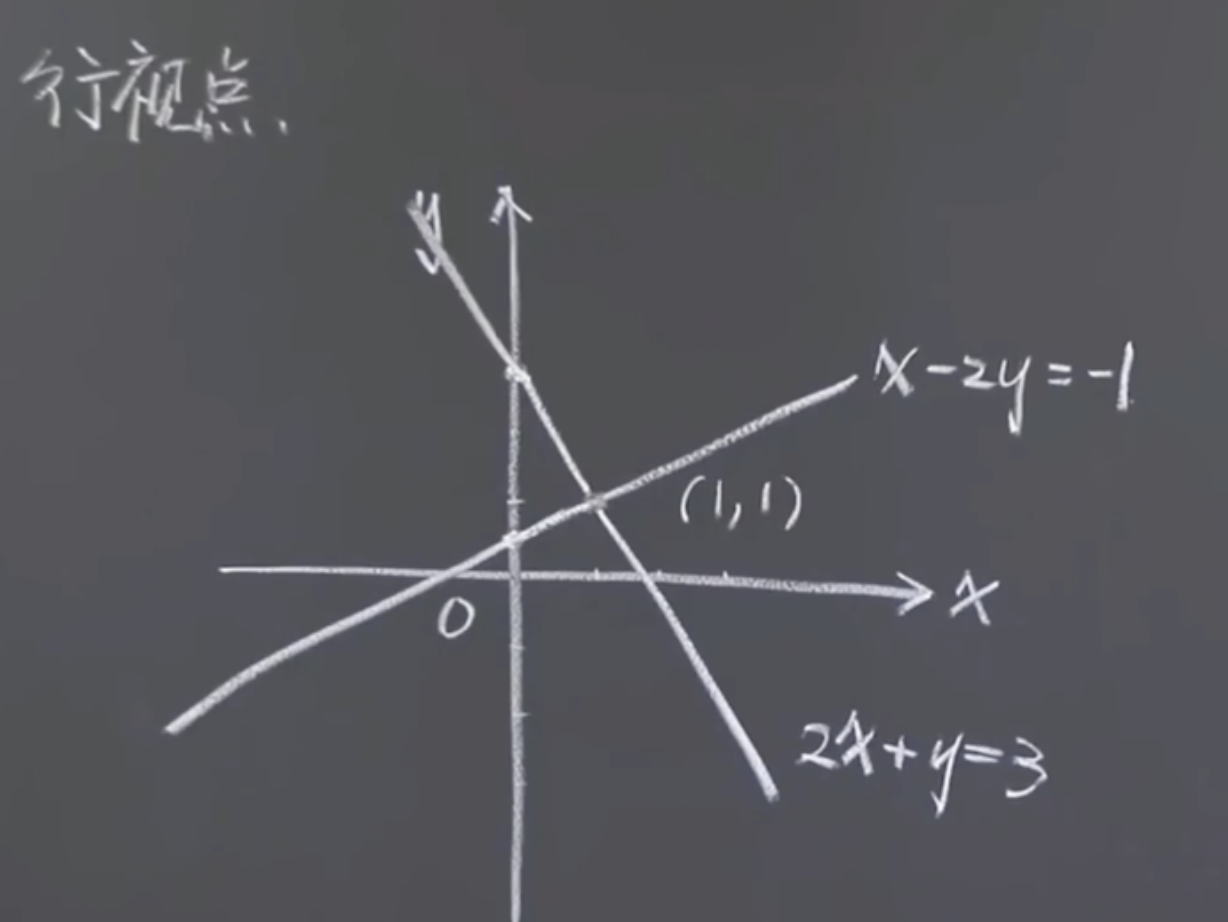 行视点.
y
x-2y=-1
(1,1)
0
x
2x+y=3